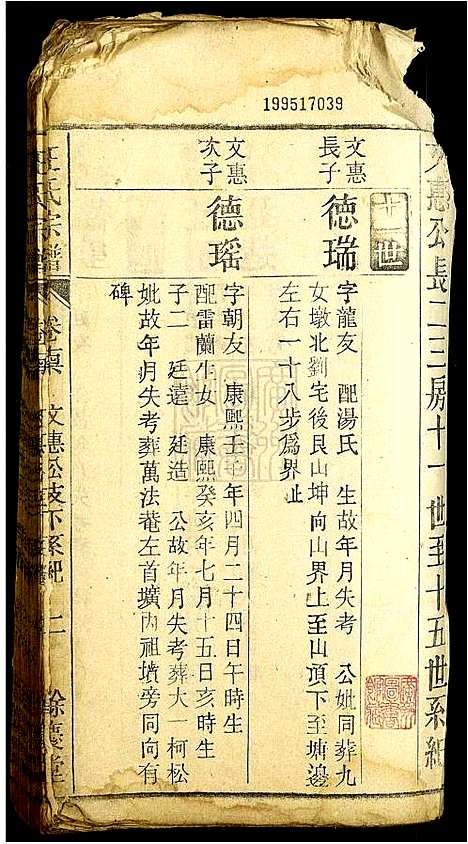 199517039
文惠公長二三房十一世至十五世系紀
十一世
文惠長子
德瑞
字龍友 配湯氏 生故年月失考 公妣同葬九
女墩北劉宅後艮山坤向山界上至山頂下至塘邊
左右一十八步爲界址
文惠次子
德瑶
字朝友 康熙壬午年四月二十四日午時生
配雷蘭生女 康熙癸亥年七月十五日亥時生
子二 廷遠 廷造 公故年月失考葬大一柯松
妣故年月失考葬萬法菴左首壙內祖墳旁同向有
碑
氏宗譜
文惠公支下系紀
二
餘慶堂